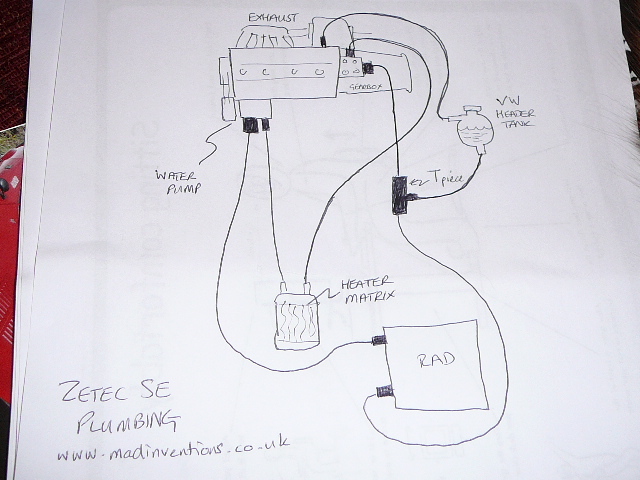 EXHAUST
GEARBOX
VW
HEADER
TANK
WATER
PUMP
T piece
HEATER
MATRIX
RAD
ZETEC SE
PLUMBING
www.madinventions.co.uk